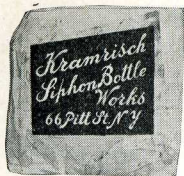 Kramrisch
Siphon Bottle
Works
66 Pitt St N Y